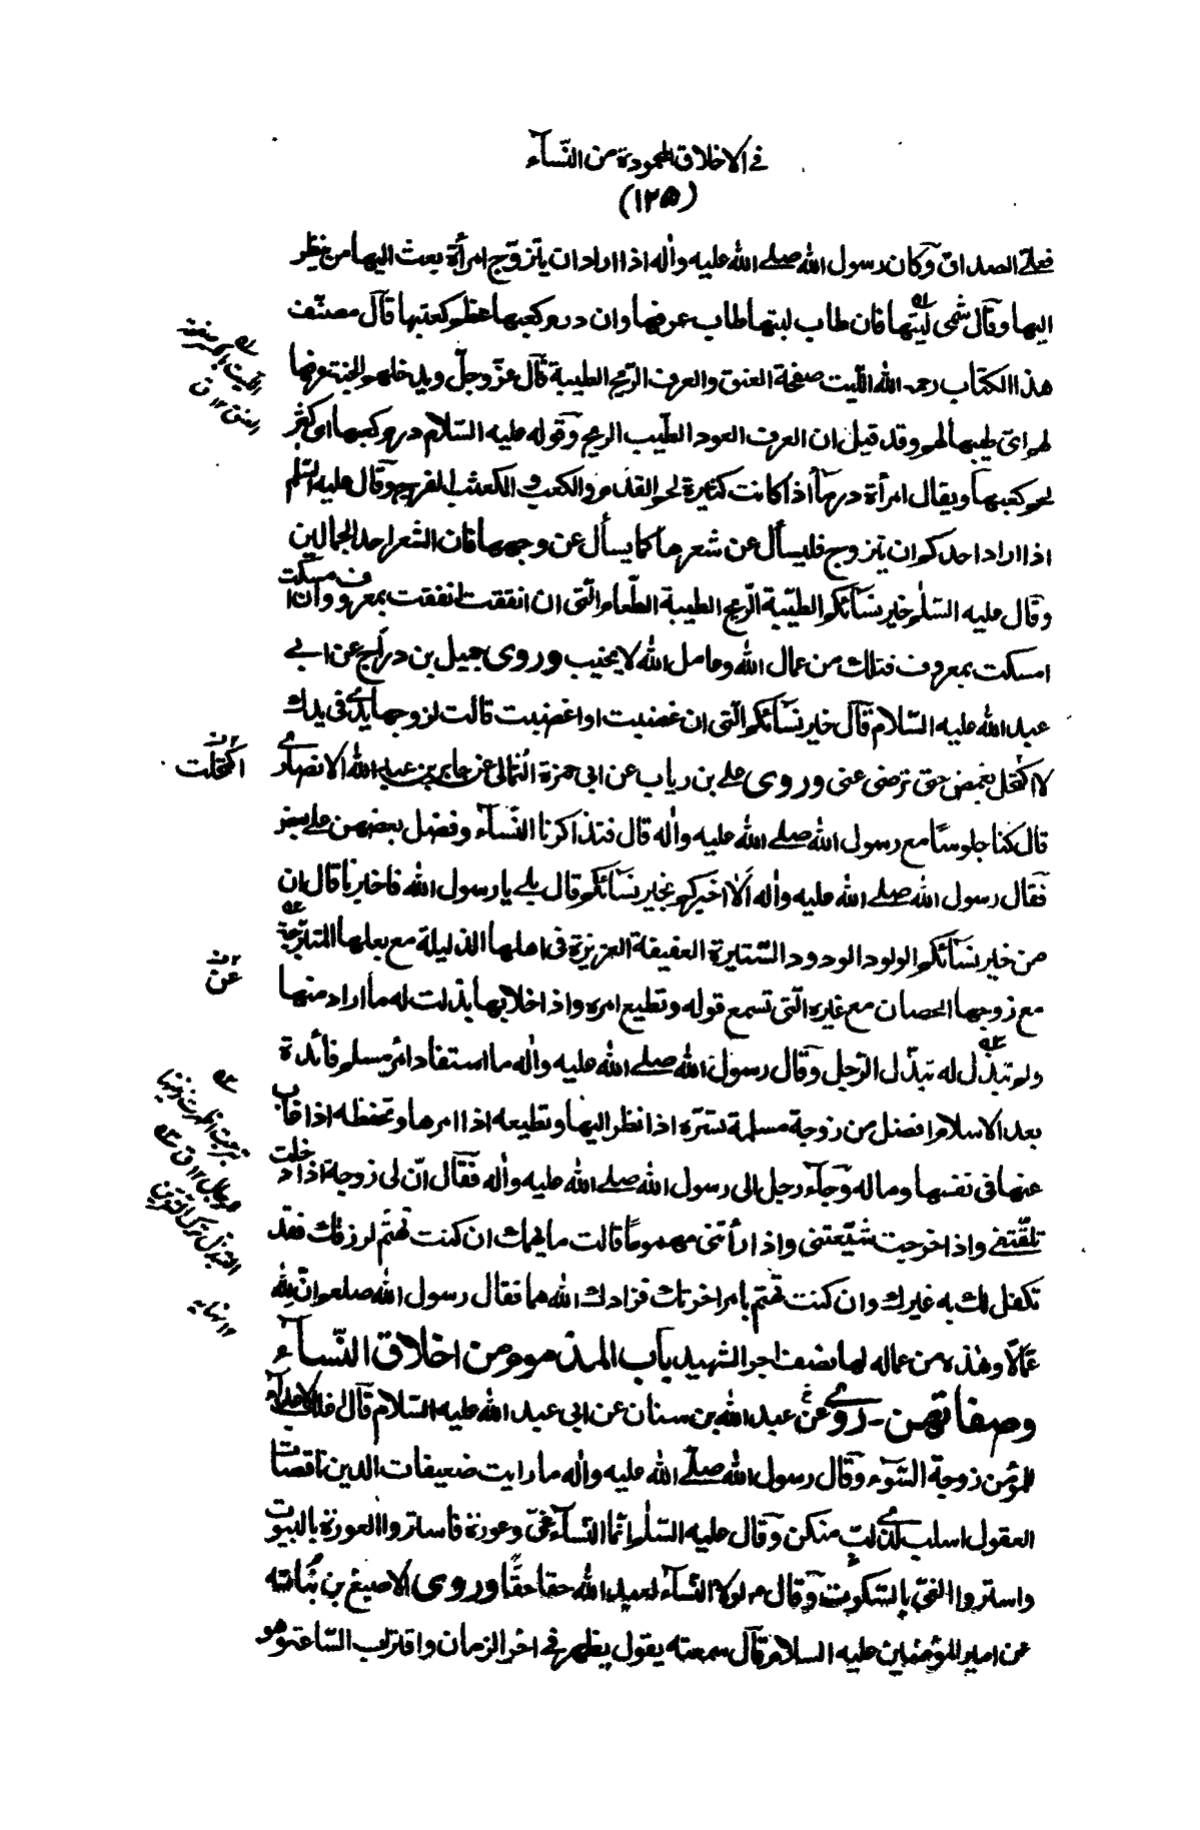 في الاخلاق المحمودة من النّسآء
(١٢٥)
فعلى الصداق وكان رسول الله صلے الله عليه واٰله اذا اراد ان يتزوّج امرأة بعث اليها من ينظر
اليها وقال شمى ليتها فان طاب ليتها طاب عرفها وان درم كعبها عظم كعثبها قال مصنّف
هذا الكتاب رحمه الله اللّيت صفحة العنق والعرف الرّيح الطيبة قال عزّ وجلّ ويدخلهم الجنة عرفها
لهم اى طيبها لهم وقد قيل ان العرف العود الطّيب الريح وقوله عليه السّلام درم كعبها اى كثر
لحم كعبها ويقال امرأة درمآء اذا كانت كثيرة لحم القدم والكعب والكعثب الفرج وقال عليه السّلم
اذا اراد احدكم ان يتزوج فليسأل عن شعرها كما يسأل عن وجهها فان الشعر احد الجمالين
وقال عليه السّلم خير نسآئكم الطيّبة الرّيح الطيبة الطّعام الّتى ان انفقت انفقت بمعروف وان امسكت
امسكت بمعروف فتلك من عمال الله وعامل الله لا يخيب وروى جميل بن درّاج عن ابى
عبد الله عليه السّلام قال خير نسآئكم الّتى ان غضبت او اغضبت قالت لزوجها يدى فى يدك
لا اكتحل بغمض حتى ترضى عنى وروى على بن رياب عن ابى حمزة الثمالى عن جابر بن عبد الله الانصارى
٢ن
اكتحلت
قال كنا جلوسًا مع رسول الله صلے الله عليه واٰله قال فتذاكرنا النّسآء وفضل بعضهن على بعض
فقال رسول الله صلے الله عليه واٰله ألا اخبركم بخير نسآئكم قال بلے يا رسول الله فاخبرنا قال ان
من خير نسآئكم الولود الودود السّتيرة العفيفة العزيزة فى اهلها الذليلة مع بعلها المتبرّجة
٢ن
عن
مع زوجها الحصان مع غيره الّتى تسمع قوله وتطيع امره واذا خلا بها بذلت له ما اراد منها
ولم تبذّل له تبذّل الرّجل وقال رسول الله صلے الله عليه واٰله ما استفاد امرء مسلم فائدة
بعد الاسلام افضل من زوجة مسلمة تسرّه اذا نظر اليها وتطيعه اذا امرها وتحفظه اذا غاب
عنها فى نفسها وماله وجآء رجل الى رسول الله صلے الله عليه واٰله فقال انّ لى زوجة اذا دخلت
تلقّتنى واذا خرجت شيّعتنى واذا رأتنى مهمومًا قالت ما يهمك ان كنت تهتم لرزقك فقد
تكفل لك به غيرك وان كنت تهتم بامر اخرتك فزادك الله هما فقال رسول الله صلعم انّ لله
عمّالا وهذه من عماله لها نصف اجر الشهيد باب المذموم من اخلاق النّسآء
وصفاتهن - روى عن عبد الله بن سنان عن ابى عبد الله عليه السّلام قال اغلب الاعدآء
للمؤمن زوجة السّوء وقال رسول الله صلّے الله عليه واٰله ما رايت ضعيفات الدين ناقصات
العقول اسلب لذى لبّ منكن وقال عليه السّلم انّما النّسآء عىّ وعورة فاستروا العورة بالبيوت
واستروا العىّ بالسّكوت وقال م لولا النّسآء لعبد الله حقا حقًّا وروى الاصبغ بن نُباتة
عن امير المؤمنين عليه السلام قال سمعته يقول يظهر فى اخر الزمان واقتراب السّاعة وهو